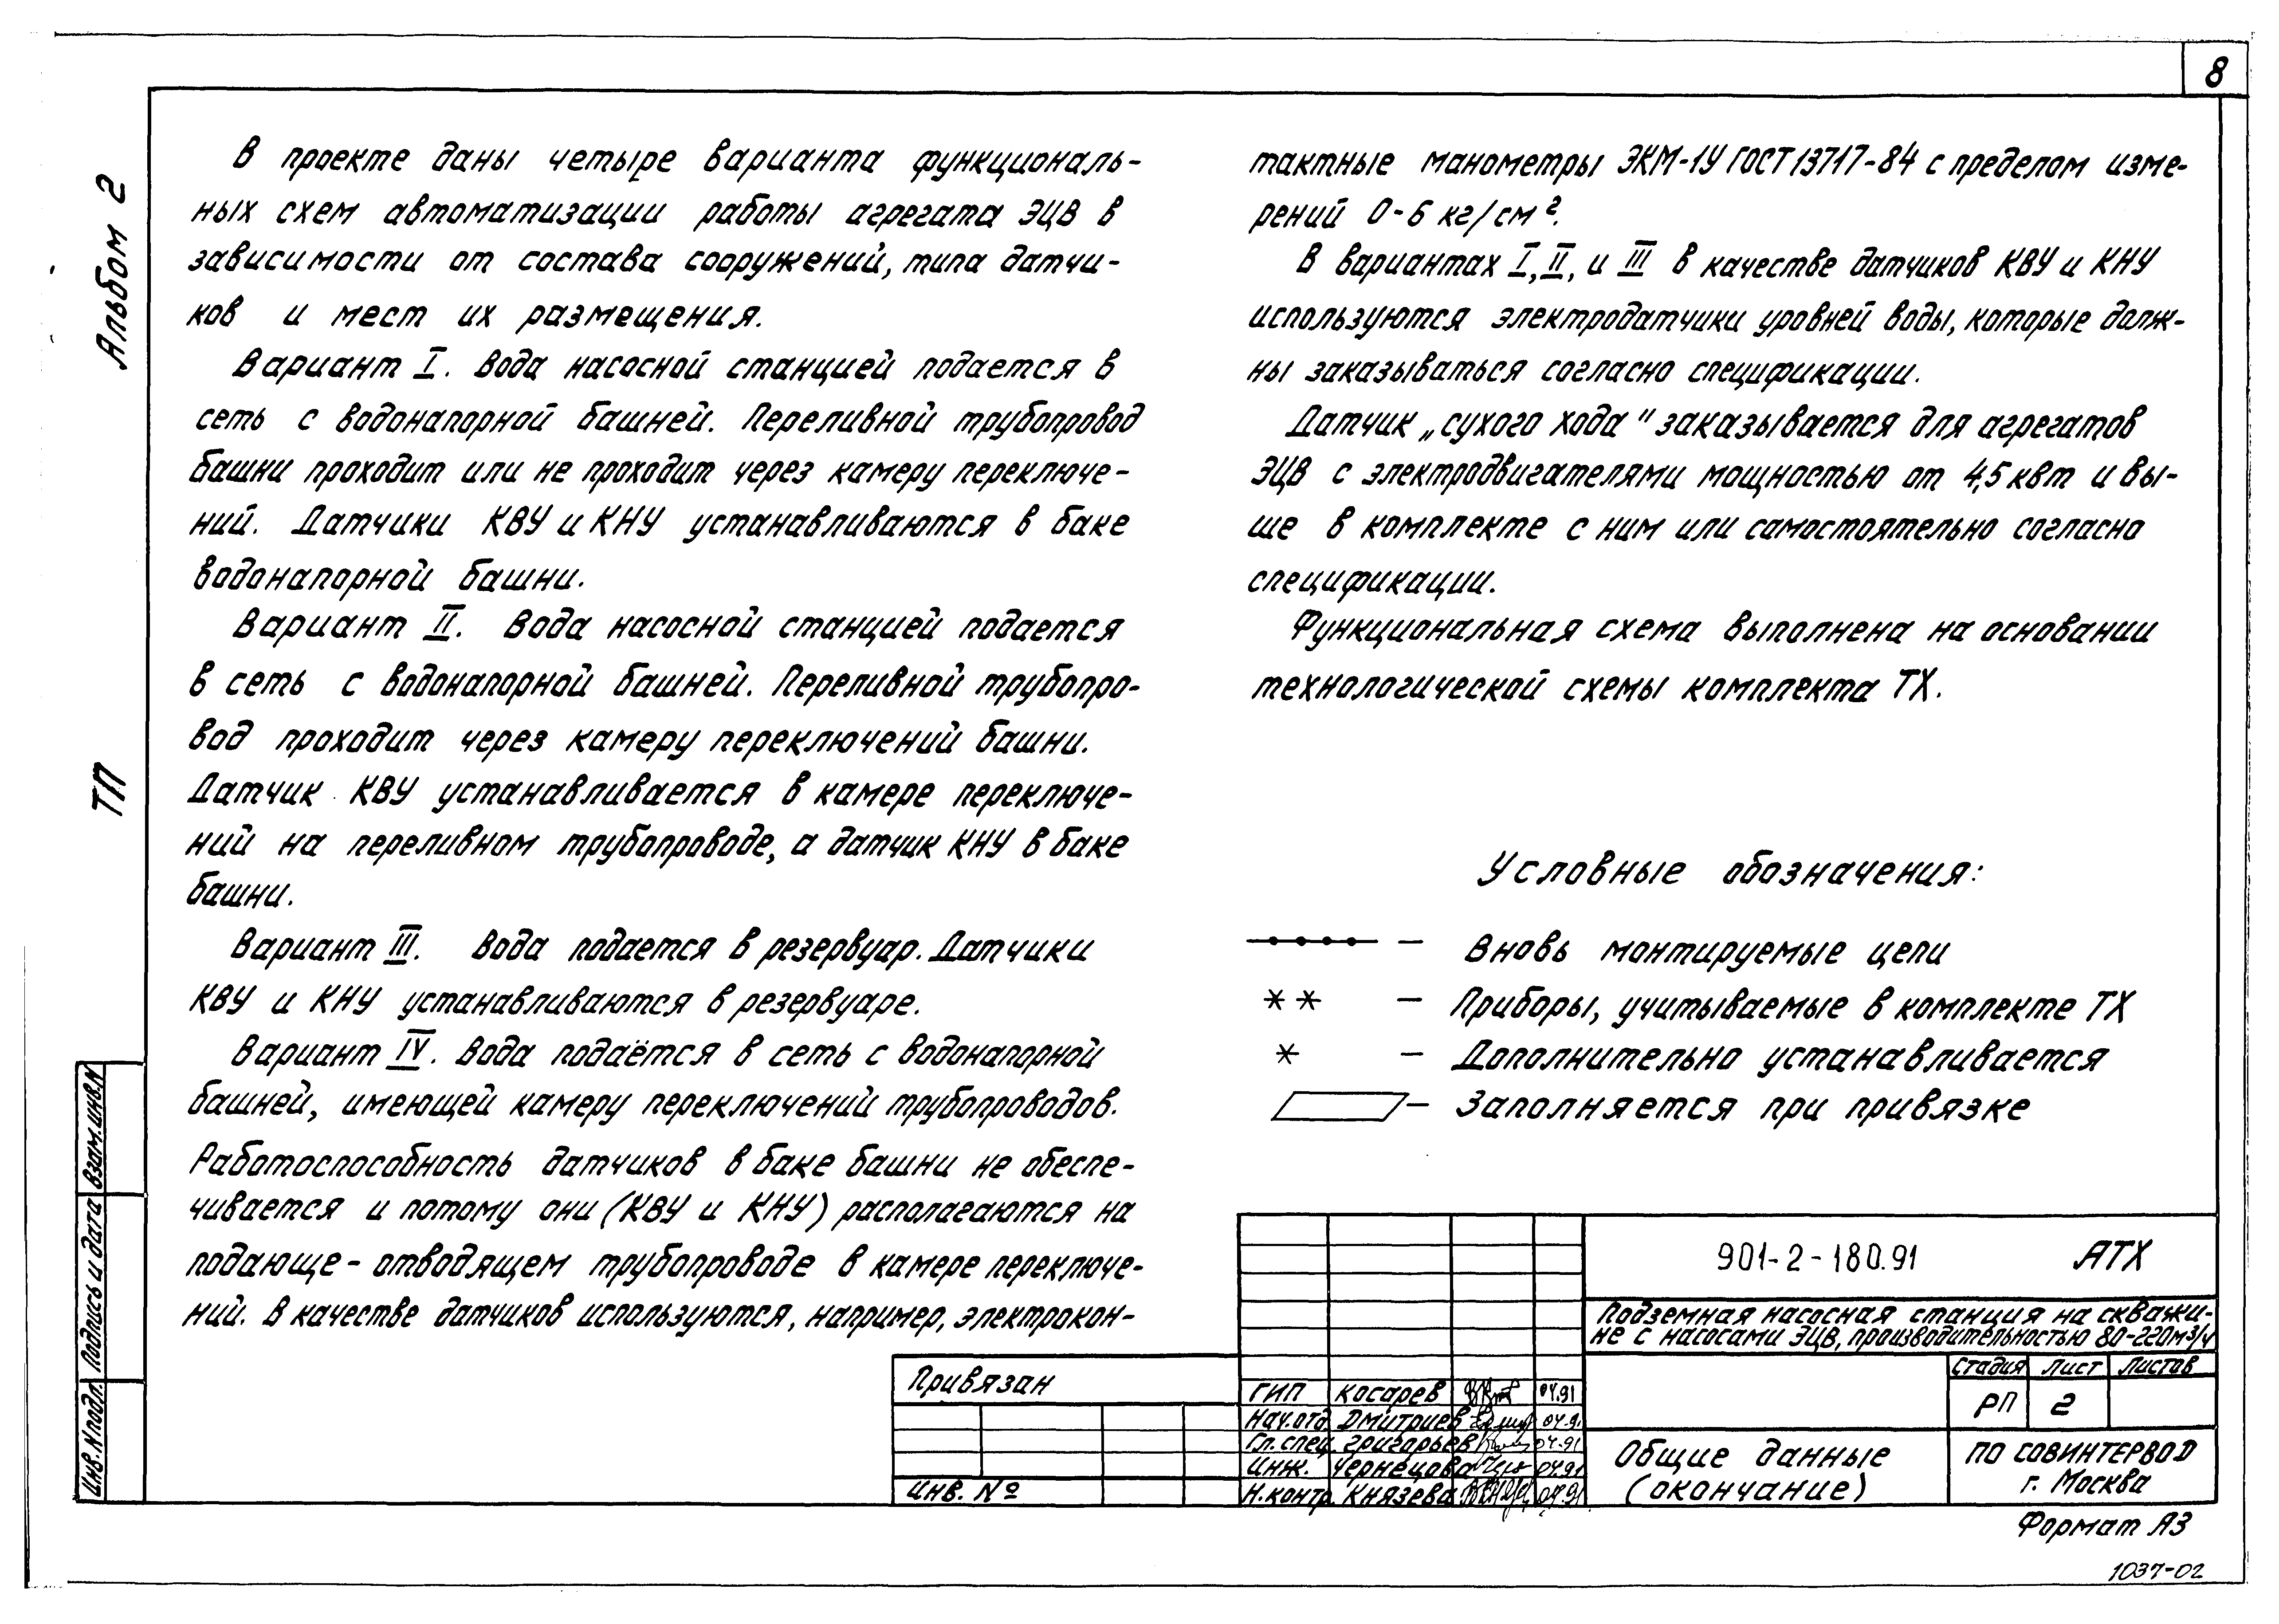 8
Альбом 2
ТП
В проекте даны четыре варианта функциональ-
ных схем автоматизации работы агрегата ЭЦВ в
зависимости от состава сооружений, типа датчи-
ков и мест их размещения.
Вариант I. Вода насосной станцией подается в
сеть с водонапорной башней. Переливной трубопровод
башни проходит или не проходит через камеру переключе-
ний. Датчики КВУ и КНУ устанавливаются в баке
водонапорной башни.
Вариант II. Вода насосной станцией подается
в сеть с водонапорной башней. Переливной трубопро-
вод проходит через камеру переключений башни.
Датчик КВУ устанавливается в камере переключе-
ний на переливном трубопроводе, а датчик КНУ в баке
башни.
Вариант III. Вода подается в резервуар. Датчики
КВУ и КНУ устанавливаются в резервуаре.
Вариант IV. Вода подаётся в сеть с водонапорной
башней, имеющей камеру переключений трубопроводов.
Работоспособность датчиков в баке башни не обеспе-
чивается и потому они (КВУ и КНУ) располагаются на
подающе-отводящем трубопроводе в камере переключе-
ний. В качестве датчиков используются, например, электрокон-
тактные манометры ЭКМ-1У ГОСТ 13717-84 с пределом изме-
рений 0-6 кг/см².
В вариантах I, II, и III в качестве датчиков КВУ и КНУ
используются электродатчики уровней воды, которые долж-
ны заказываться согласно спецификации.
Датчик „сухого хода" заказывается для агрегатов
ЭЦВ с электродвигателями мощностью от 4,5 квт и вы-
ше в комплекте с ним или самостоятельно согласно
спецификации.
Функциональная схема выполнена на основании
технологической схемы комплекта ТХ.
Условные обозначения:
— Вновь монтируемые цепи
** — Приборы, учитываемые в комплекте ТХ
* — Дополнительно устанавливается
— Заполняется при привязке
Взам.инв.N
Подпись и дата
Инв.N подл.
Привязан
Инв. №
ГИП Косарев 04.91
Нач.отд Дмитриев 04.91
Гл.спец. Григорьев 04.91
Инж. Чернецова 04.91
Н.контр. Князева 04.91
901-2-180.91 АТХ
Подземная насосная станция на скважи-
не с насосами ЭЦВ, производительностью 80-220м3/ч
Стадия Лист Листов
РП 2
Общие данные
(окончание)
ПО СОВИНТЕРВОД
г. Москва
Формат А3
1037-02